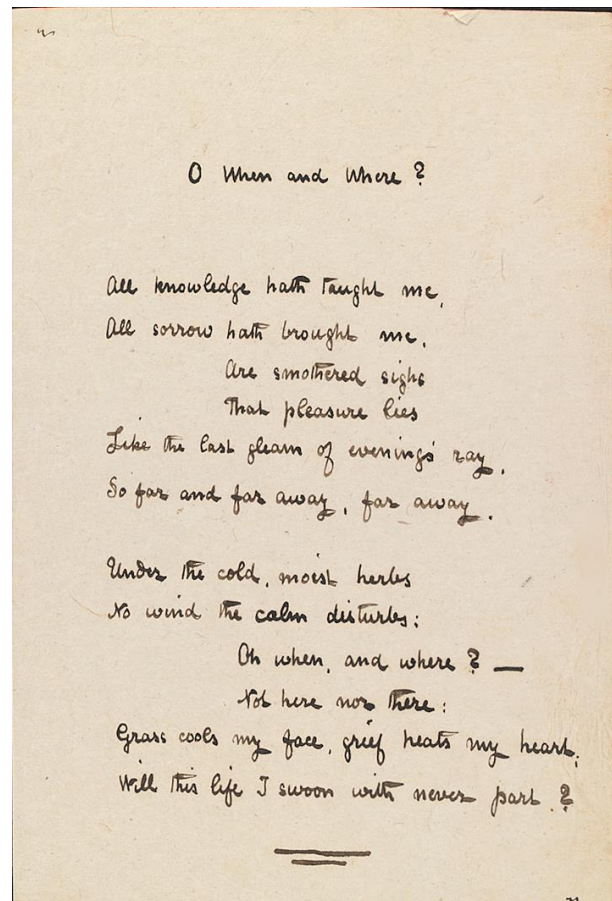 O When and Where?
All knowledge hath taught me,
All sorrow hath brought me,
Are smothered sighs
That pleasure lies
Like the last gleam of evening's ray,
So far and far away, far away.
Under the cold, moist herbs
No wind the calm disturbs:
Oh when, and where? —
Not here nor there:
Grass cools my face, grief heats my heart;
Will this life I swoon with never part?